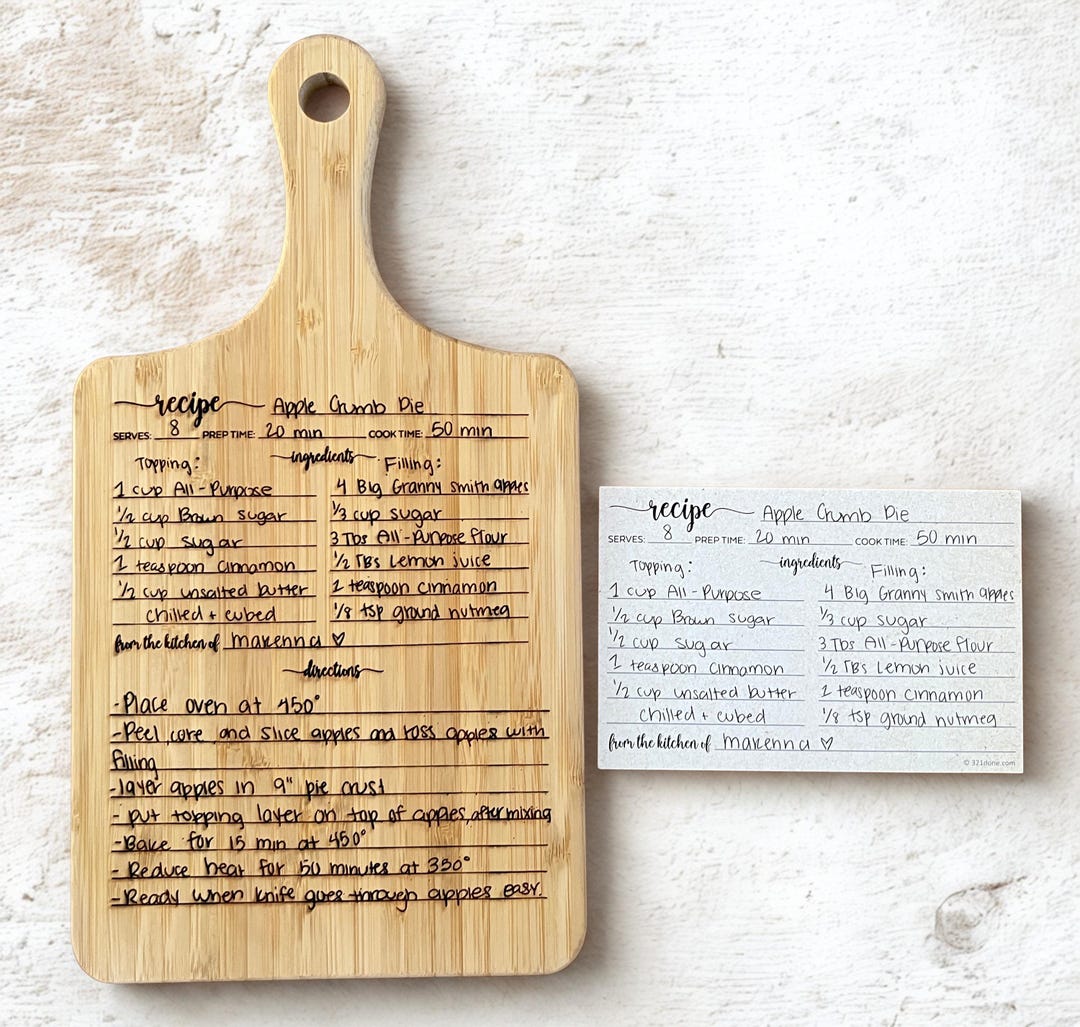 recipe Apple Crumb Pie
SERVES: 8 PREP TIME: 20 min COOK TIME: 50 min
ingredients
Topping: Filling:
1 cup All-Purpose 4 Big Granny smith apples
1/2 cup Brown sugar 1/3 cup sugar
1/2 cup sugar 3 Tbs All-Purpose flour
1 teaspoon cinnamon 1/2 TBs Lemon juice
1/2 cup unsalted butter 1 teaspoon cinnamon
chilled + cubed 1/8 tsp ground nutmeg
from the kitchen of makenna ♡
directions
-Place oven at 450°
-Peel, core, and slice apples and toss apples with
filling
-layer apples in 9" pie crust
- put topping layer on top of apples, after mixing
-Bake for 15 min at 450°
- Reduce heat for 50 minutes at 350°
-Ready when knife goes through apples easy.
recipe Apple Crumb Pie
SERVES: 8 PREP TIME: 20 min COOK TIME: 50 min
ingredients
Topping: Filling:
1 cup All-Purpose 4 Big Granny smith apples
1/2 cup Brown sugar 1/3 cup sugar
1/2 cup sugar 3 Tbs All-Purpose flour
1 teaspoon cinnamon 1/2 TBs Lemon juice
1/2 cup unsalted butter 1 teaspoon cinnamon
chilled + cubed 1/8 tsp ground nutmeg
from the kitchen of makenna ♡
© 321done.com